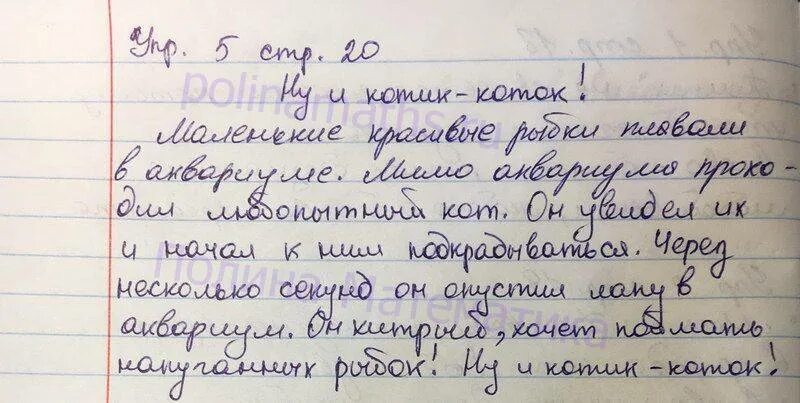 Упр. 5 стр. 20
Ну и котик-коток!
Маленькие красивые рыбки плавали
в аквариуме. Мимо аквариума прохо-
дил любопытный кот. Он увидел их
и начал к ним подкрадываться. Через
несколько секунд он опустил лапу в
аквариум. Он хитрый, хочет поймать
напуганных рыбок! Ну и котик-коток!
polinamaths.ru
Полина Математика